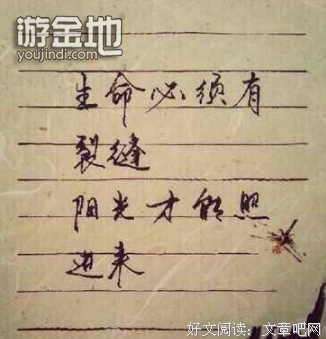 游金地
youjindi.com
生命必须有
裂缝
阳光才能照
进来
好文阅读：文章吧网